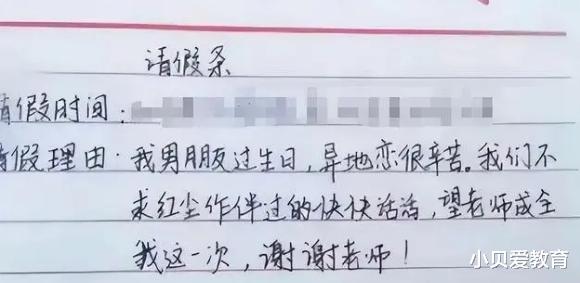 请假条
请假时间：
请假理由：我男朋友过生日，异地恋很辛苦。我们不
求红尘作伴过的快快活活，望老师成全
我这一次，谢谢老师！
小贝爱教育